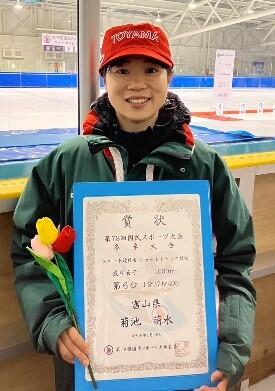 TOYAMA
賞状
第78回国民スポーツ大会
冬季大会
スケート競技会 ショートトラック競技
成年女子 1000m
第6位 1分37秒406
富山県
菊池 萌水